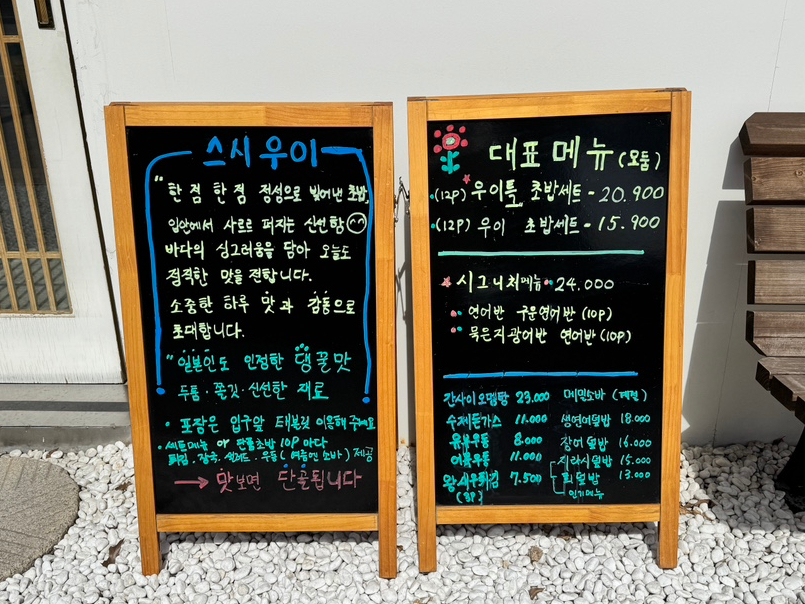 스시우이
"한 점 한 점 정성으로 빚어낸 초밥,
입안에서 사르르 퍼지는 신선함
바다의 싱그러움을 담아 오늘도
정직한 맛을 전합니다.
소중한 하루 맛과 감동으로
초대합니다.
"일본인도 인정한 댕꿀맛
두툼·쫄깃·신선한 재료
• 포장은 입구앞 태블릿 이용해 주세요
• 세트메뉴 or 단품초밥 10P 마다
튀김·장국·샐러드·우동(여름엔 소바) 제공
→ 맛보면 단골됩니다
대표메뉴(모듬)
•(12P) 우이특 초밥세트 - 20.900
•(12P) 우이 초밥세트 - 15.900
시그니처메뉴 24.000
연어반 구운연어반 (10P)
묵은지광어반 연어반 (10P)
간사이오뎅탕 23.000 메밀소바 (계절)
수제돈가스 11.000 생연어덮밥 18.000
유부우동 8.000 장어덮밥 16.000
어묵우동 11.000 지라시덮밥 15.000
왕새우튀김 7.500 회덮밥 13.000
(3P) 인기메뉴